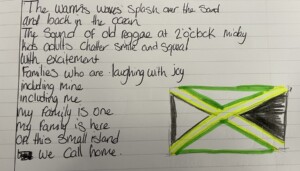 The warm waves splash over the sand
and back in the ocean
The sound of old reggae at 2 o'clock midday
kids adults chatter smile and squeal
with excitement
Families who are laughing with joy
including mine
including me
my Family is one
my Family is here
on this small island
we call home.